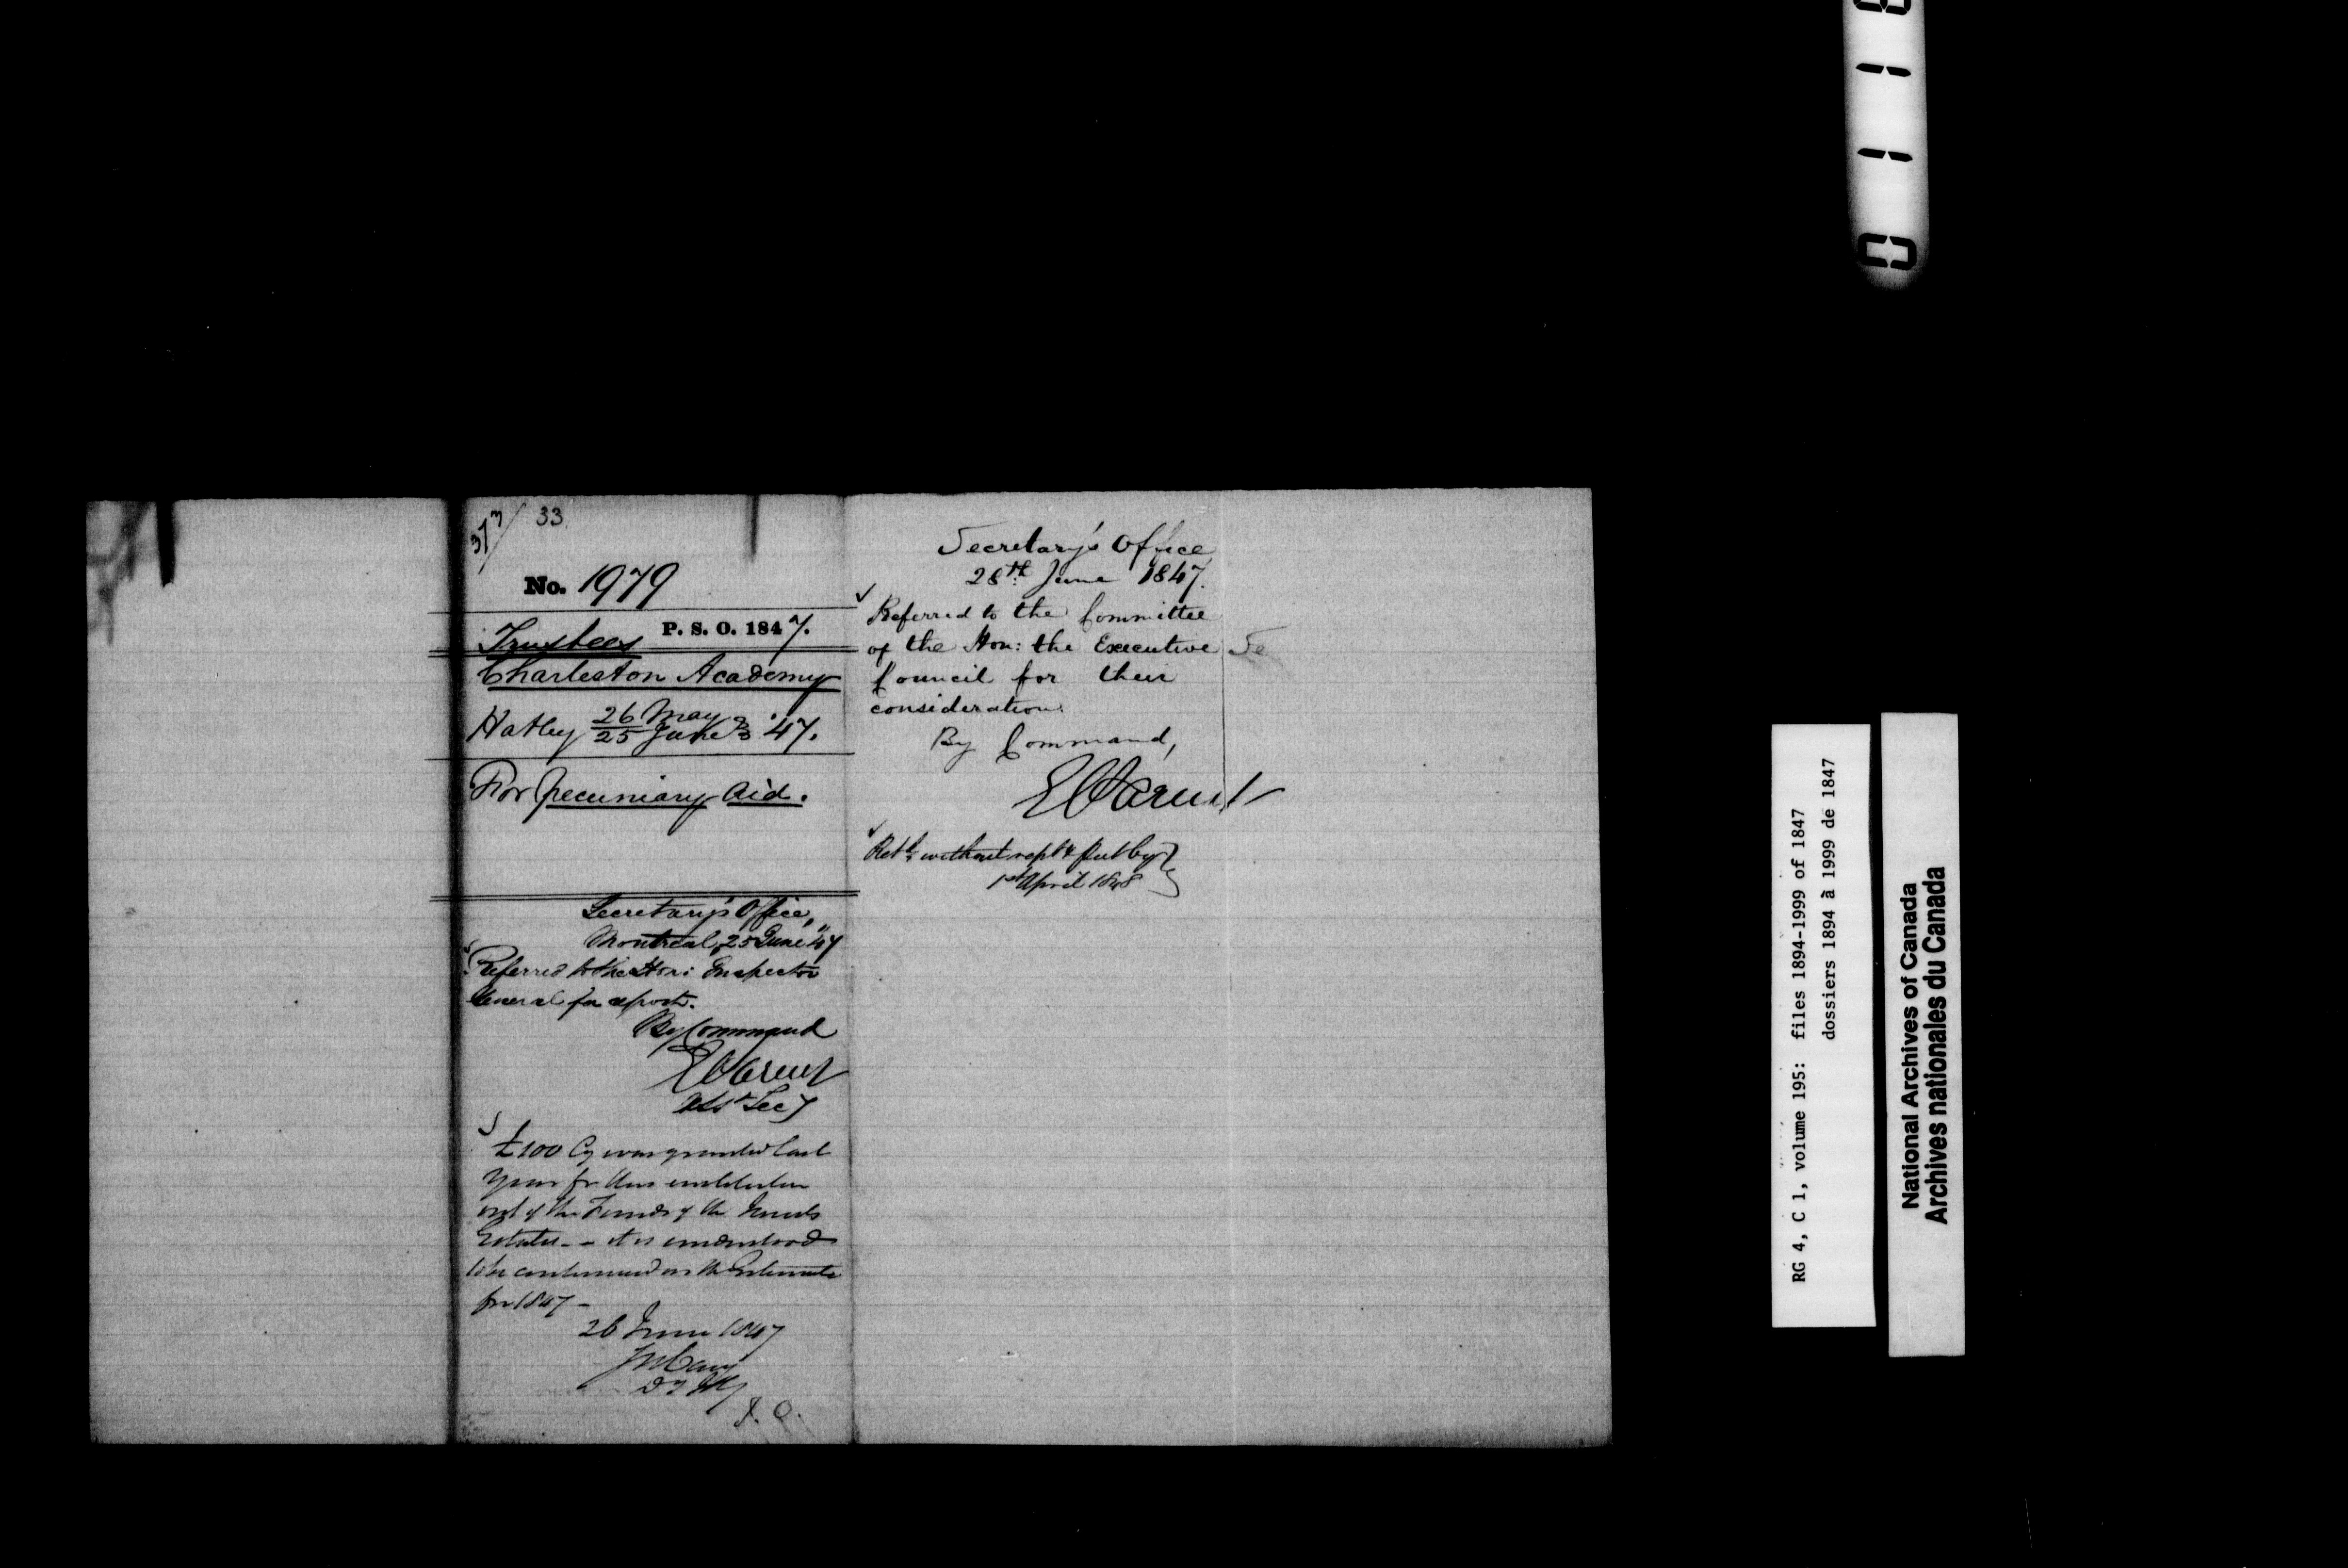 33
No. 1979
P. S. O. 1847.
Trustees
Charleston Academy
Hatley 26 May / 25 June '47.
For pecuniary aid.
Secretary's Office,
Montreal, 25 June '47
Referred to the Hon: Inspector
General for report.
By Command
Asst Secy
£100 Cy was granted last
Year for this institution
out of the Funds of the Jesuits
Estates - - it is understood
to be continued on the Estimate
for 1847 -
26 June 1847
Secretary's Office
28th June 1847.
Referred to the Committee
of the Hon: the Executive
Council for their
consideration.
By Command,
Retd. without rept & put by
1st April 1848
0 1 1 8
RG 4, C 1, volume 195: files 1894-1999 of 1847
dossiers 1894 à 1999 de 1847
National Archives of Canada
Archives nationales du Canada